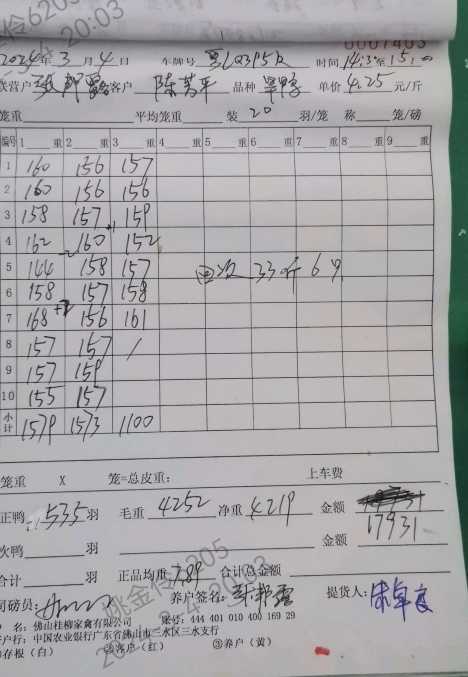 0007403
2024年3月4日 车牌号 粤L03P5K 时间14:30至15:00
客户 陈芳平 品种 单价 4.25 元/斤
笼重 平均笼重 装 20 羽/笼 称 笼/磅
编号 1 重 2 重 3 重 4 重 5 重 6 重 7 重 8 重 9 重
1 160 156 157
2 160 156 156
3 158 157 +1 159
4 162 -2 160 152
5 144 158 157 回收 33斤 6只
6 158 157 158
7 168 156 161
8 157 157 /
9 157 159
10 155 157
小计 1579 1573 1100
笼重 X 笼=总皮重: 上车费
正鸭 535 羽 毛重 4252 净重 4219 金额 17931
次鸭 羽 金额
合计 羽 正品均重 7.89 合计总金额
司磅员: 养户签名: 提货人:
名: 佛山桂柳家禽有限公司 账号: 444 401 010 400 169 29
开户行: 中国农业银行广东省佛山市三水区三水支行
①存根(白) ②客户(红) ③养户(黄)
姚金伶6205
2024-3-4 20:03